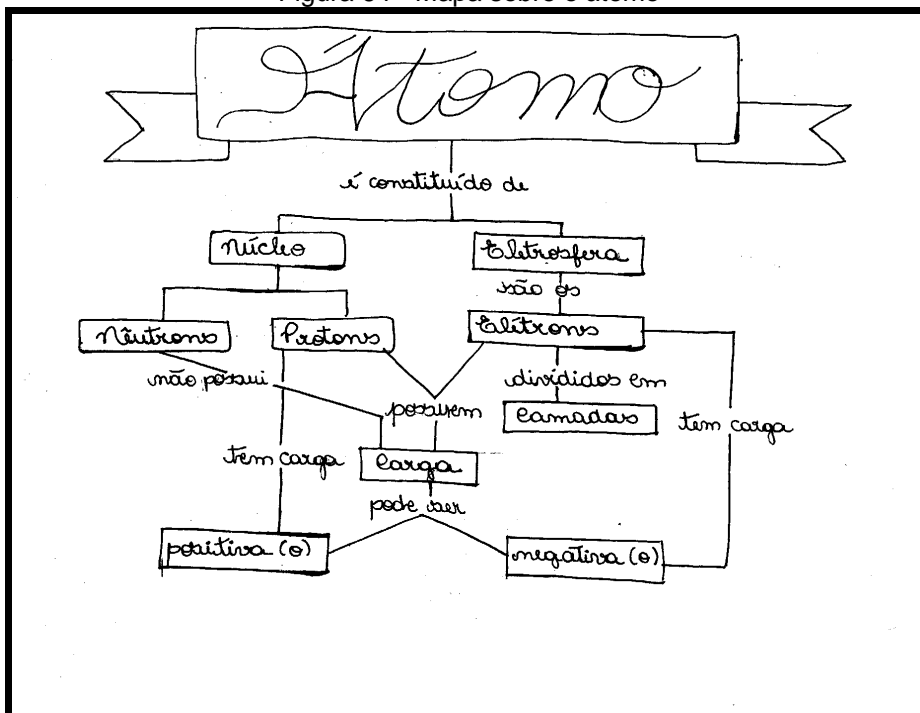 Átomo
é constituído de
Núcleo
Eletrosfera
são os
Nêutrons
Protons
Elétrons
não possui
divididos em
possuem
Camadas
tem carga
tem carga
Carga
pode ser
positiva (⊖)
negativa (⊖)